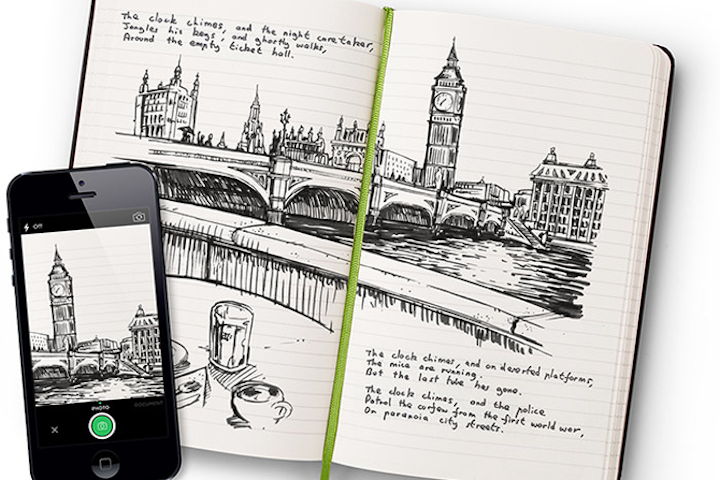 The clock chimes, and the night caretaker,
Jangles his keys, and ghostly walks,
Around the empty ticket hall.
The clock chimes, and on deserted platforms,
The mice are running,
But the last tube has gone.
The clock chimes, and the police
Patrol the corfew from the first world war,
On paranoia city streets.
Off
PHOTO
DOCUMENT